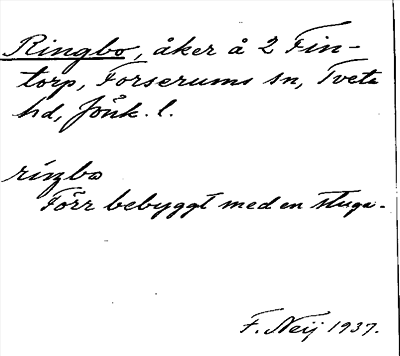 Ringbo, åker å 2 Fin-
torp, Forserums sn, Tveta
hd, Jönk. l.
riŋbo
Förr bebyggt med en stuga.
F. Neij 1937.